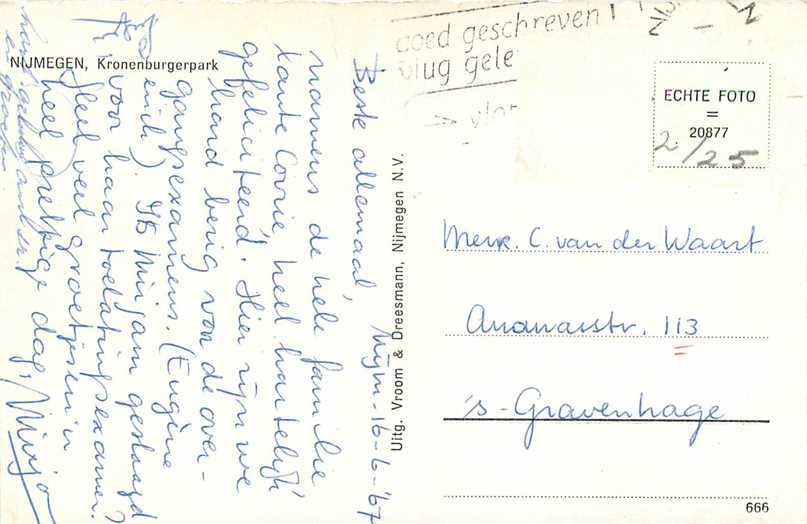 NIJMEGEN, Kronenburgerpark
Nijm - 16-6-'67
Beste allemaal,
namens de hele familie
tante Corrie, heel hartelijk
gefeliciteerd. Hier zijn we
hard bezig voor de over-
gangsexamens. (Eugène
en ik). Is Mirjam geslaagd
voor haar toelatingsexamen?
Heel veel groetjes en 'n
heel prettige dag,
Mirjo
Uitg. Vroom & Dreesmann, Nijmegen N.V.
goed geschreven
vlug gele
ECHTE FOTO
=
20877
2/25
Mevr. C. van der Waart
Ananasstr. 113
's-Gravenhage
666